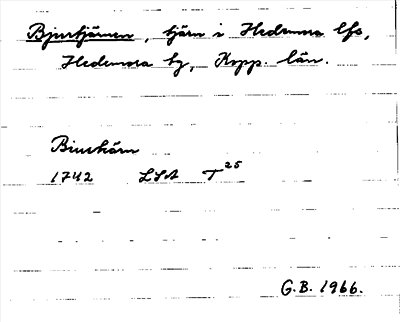 Bjurtjärnen, tjärn i Hedemora lfs,
Hedemora tg, Kopp. län.
Biurkärn
1742 LSA T 25
G.B. 1966.